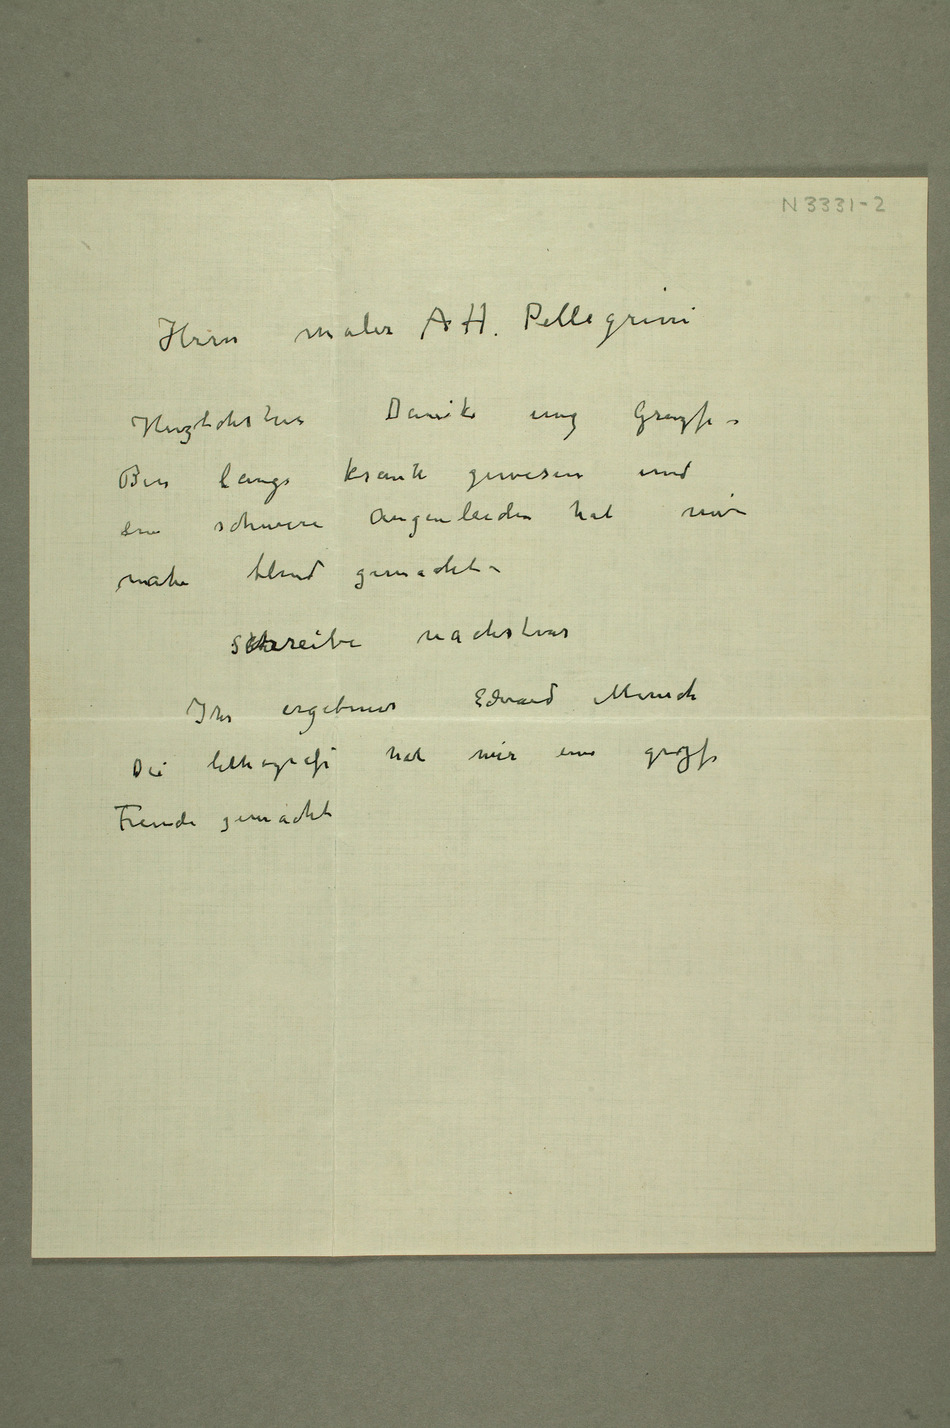 N 3331-2
Herrn maler A H. Pellegrini
Herzlichsten Dank und Grüße –
Bin lange krank gewesen und
ein schwere Augenleiden hat mir
nahe blind gemacht –
Schreibe nächstens
Ihr ergebener Edvard Munch
Die lithografi hat mir eine große
Freude gemacht